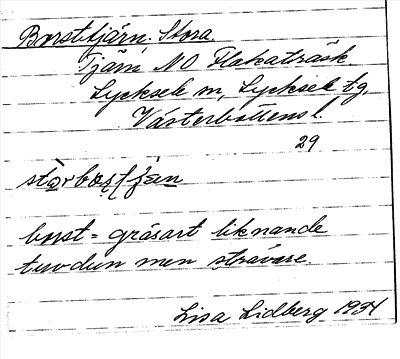 Borsttjärn. Stora.
Tjärn NO Flakaträsk.
Lycksele sn, Lycksele tg,
Västerbottens l.
29
borst = gräsart liknande
tuvdun men strävare.
Lisa Lidberg 1934